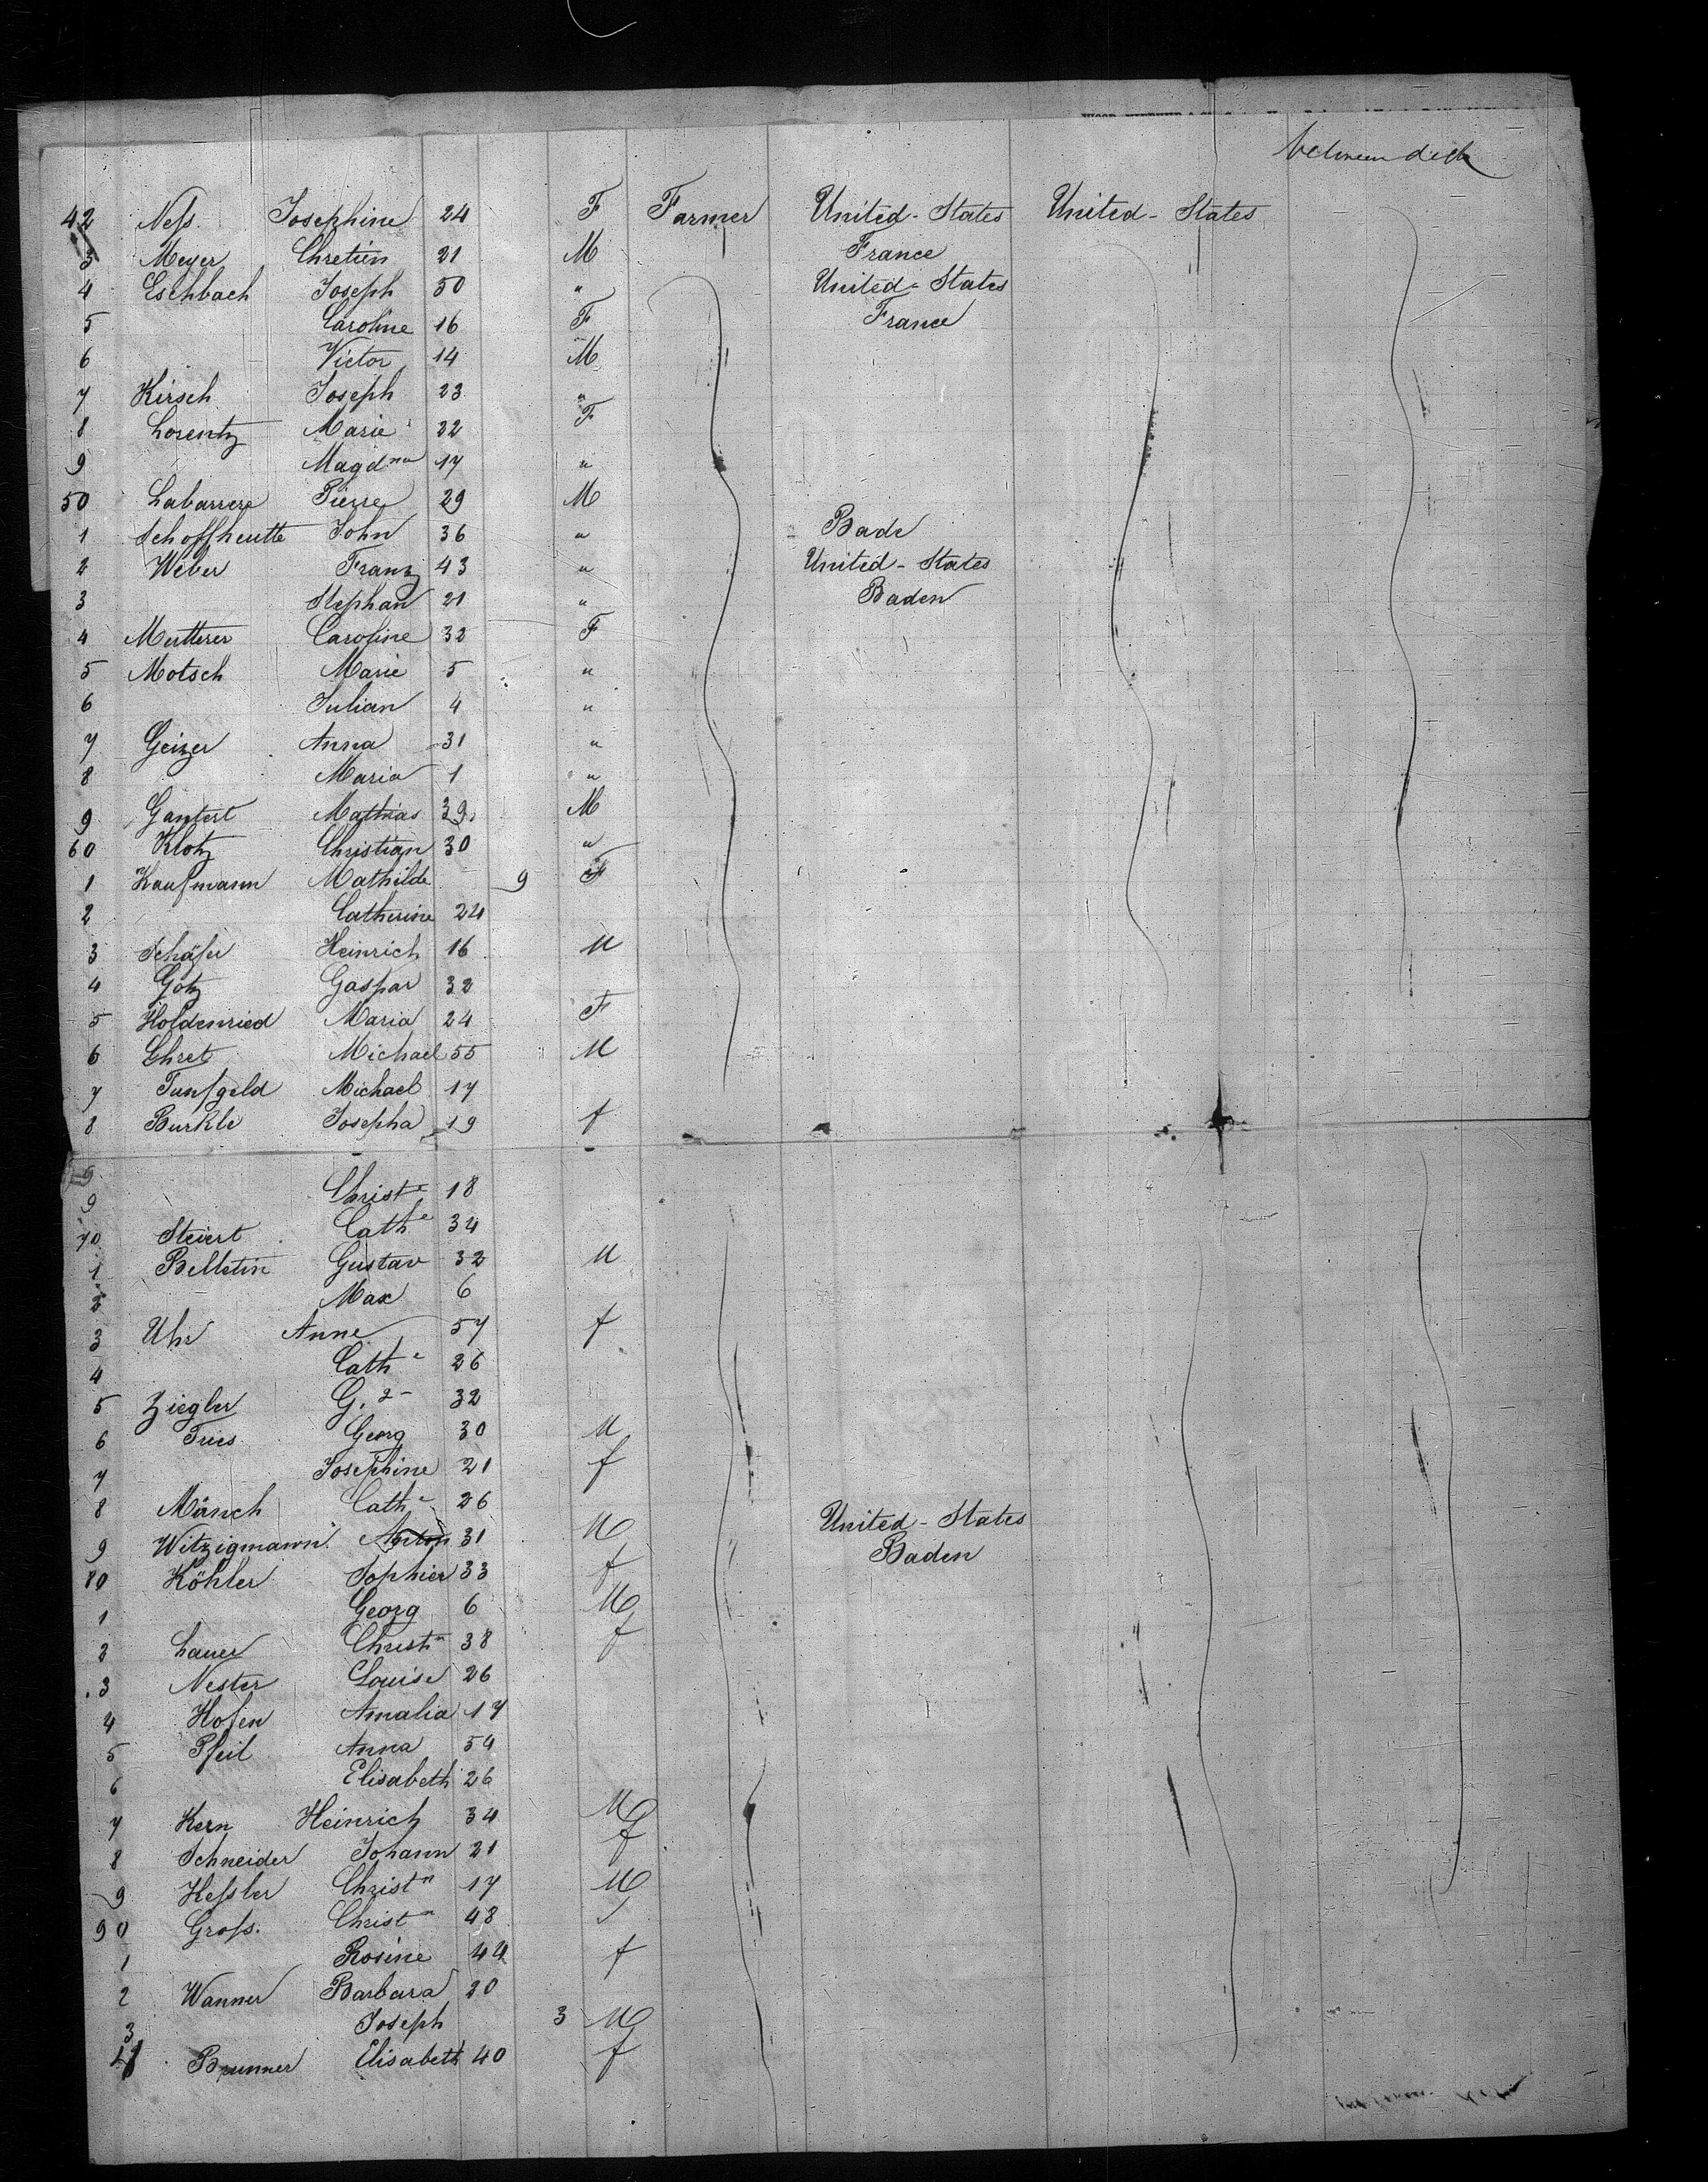 between deck
42 Neſs. Josephine 24 F Farmer United - States United - States
3 Meyer Chretien 21 M " France "
4 Eschbach Joseph 50 " United - States
5 Caroline 16 F France
6 Victor 14 M
7 Kirsch Joseph 23 "
8 Lorentz Marie 22 F
9 Magdna 17 "
50 Labarrere Pierre 29 M
1 Schoffheutte John 36 " Bade
2 Weber Franz 43 " United - States
3 Stephan 21 " Baden
4 Mutterer Caroline 32 F
5 Motsch Marie 5 "
6 Julian 4 "
7 Geizer Anna 31 "
8 Maria 1 "
9 Gantert Mathias 39 M
60 Klotz Christian 30 "
1 Kaufmann Mathilde 9 F
2 Catherine 24
3 Schäfer Heinrich 16 M
4 Götz Gaspar 32
5 Holdenried Maria 24 F
6 Ehret Michael 55 M
7 Funfgeld Michael 17
8 Burkle Josepha 19 f
9
9 Christe 18
70 Steiert Cathe 34
1 Belletin Gustav 32 M
2 Max 6
3 Uhr Anne 57 f
4 Cathe 26
5 Ziegler G. 32
6 Fues Georg 30 M
7 Josephine 21 f
8 Mänch Cathe 26
9 Witzigmann Anton 31 M United - States
80 Köhler Sophie 33 f Baden
1 Georg 6 M
2 Lauer Christn 38 f
3 Nester Louise 26
4 Hofen Amalia 17
5 Pfeil Anna 54
6 Elisabeth 26
7 Kern Heinrich 34 M
8 Schneider Johann 21 f
9 Heſsler Christn 17 M
90 Groſs. Christn 48
1 Rosine 44 f
2 Wanner Barbara 20
3 Joseph 3 M
4 Brunner Elisabeth 40 f